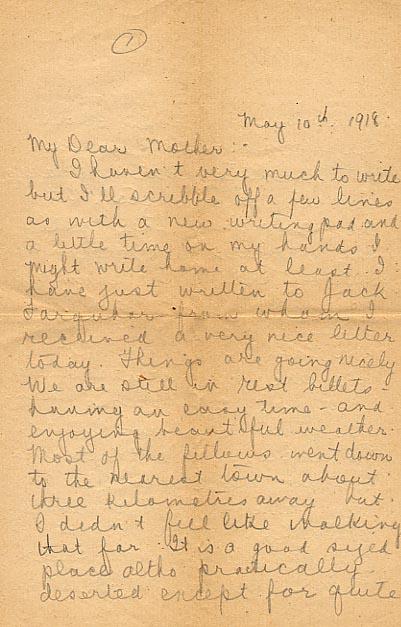 1
May 10th. 1918.
My Dear Mother:-
I haven't very much to write
but I'll scribble off a few lines
as with a new writing pad and
a little time on my hands I
might write home at least. I
have just written to Jack
Farquhar from whom I
received a very nice letter
today. Things are going nicely
We are still in rest billets
having an easy time - and
enjoying beautiful weather.
Most of the fellows went down
to the nearest town about
three kilometres away but
I didn't feel like walking
that far. It is a good sized
place altho practically
deserted except for quite